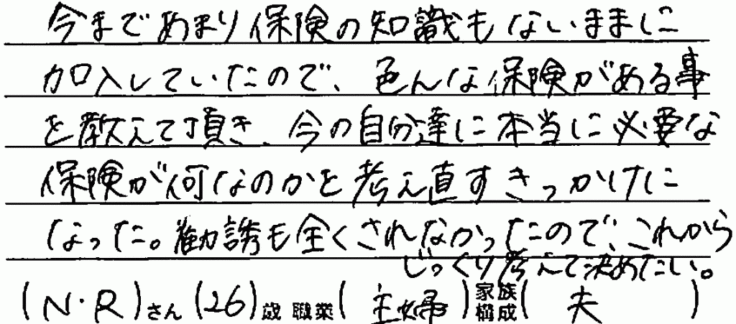 今まであまり保険の知識もないままに
加入していたので、色んな保険がある事
を教えて頂き、今の自分達に本当に必要な
保険が何なのかを考え直すきっかけに
なった。勧誘も全くされなかったので、これから
じっくり考えて決めたい。
(N・R)さん(26)歳 職業(主婦)家族構成(夫)